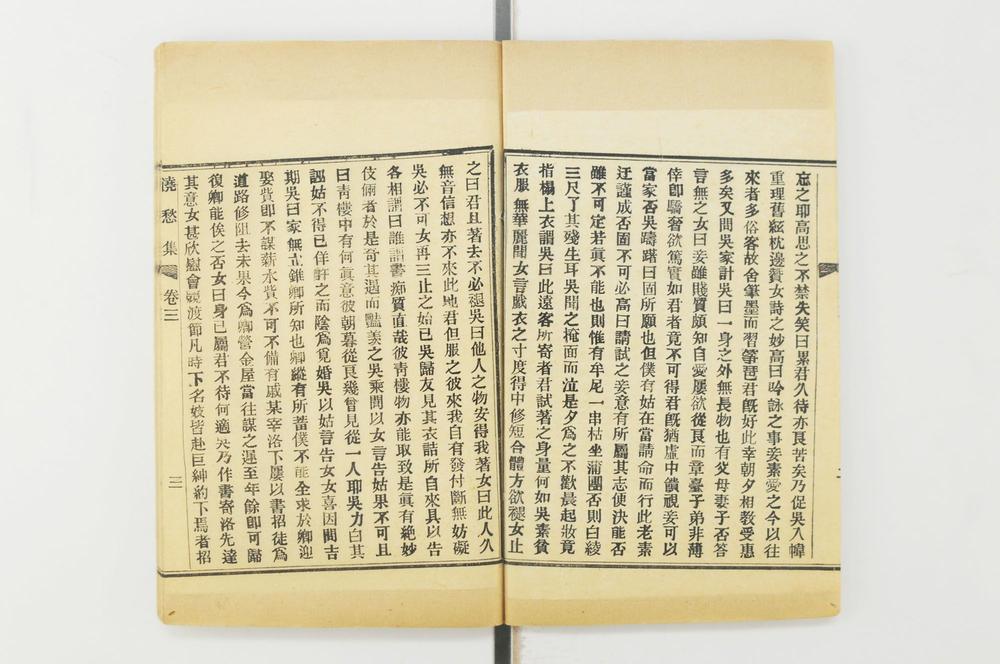 忘之耶高思之不禁失笑曰累君久待亦良苦矣乃促吳入幃
重理舊絃枕邊贊女詩之妙高曰吟詠之事妾素愛之今以往
來者多俗客故舍筆墨而習箏琶君旣好此幸朝夕相教受惠
多矣又問吳家計吳曰一身之外無長物也有父母妻子否答
言無之女曰妾雖賤質頗知自愛屢欲從良而章臺子弟非薄
倖卽驕奢欲篤實如君者竟不可得君旣猶虛中饋視妾可以
當家否吳躊躇曰固所願也但僕有姑在當請命而行此老素
迂謹成否固不可必高曰請試之妾意有所屬其志便決能否
雖不可定若眞不能也則惟有牟尼一串枯坐蒲團否則白綾
三尺了其殘生耳吳聞之掩面而泣是夕爲之不歡晨起妝竟
指榻上衣謂吳曰此遠客所寄者君試著之身量何如吳素貧
衣服無華麗聞女言戲衣之寸度得中修短合體方欲褪女止
之曰君且著去不必褪吳曰他人之物安得我著女曰此人久
無音信想亦不來此地君但服之彼來我自有發付斷無妨礙
吳必不可女再三止之始已吳歸友見其衣詰所自來具以告
各相謂曰誰謂書痴質直哉彼靑樓物亦能取致是眞有絕妙
伎倆者於是奇其遇而豔羨之吳乘間以女言告姑果不可且
曰靑樓中有何眞意彼朝暮從良幾曾見從一人耶吳力白其
誣姑不得已佯許之而陰爲覓婚吳以姑言告女女喜因間吉
期吳曰家無立錐卿所知也卿縱有所蓄僕不能全求於卿迎
娶貲卽不謀薪水貲不可不備有戚某宰洛下屢以書招徒爲
道路修阻去未果今爲卿營金屋當往謀之遲至年餘卽可歸
復卿能俟之否女曰身已屬君不待何適吳乃作書寄洛先達
其意女甚欣慰會競渡節凡時下名妓皆赴巨紳約下焉者招
澆愁集 卷三 三